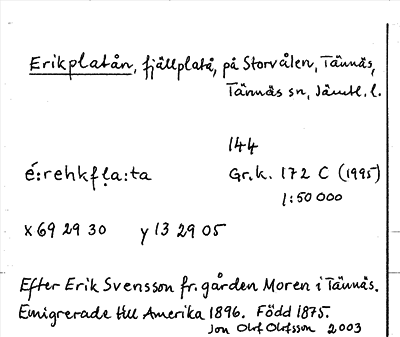 Erikplatån, fjällplatå, på Storvålen, Tännäs,
Tännäs sn, Jämtl. l.
144
é:rehkfḷa:ta Gr.k. 172 C (1995)
1:50 000
x 69 29 30 y 13 29 05
Efter Erik Svensson fr. gården Moren i Tännäs.
Emigrerade till Amerika 1896. Född 1875.
Jon Olof Olofsson 2003